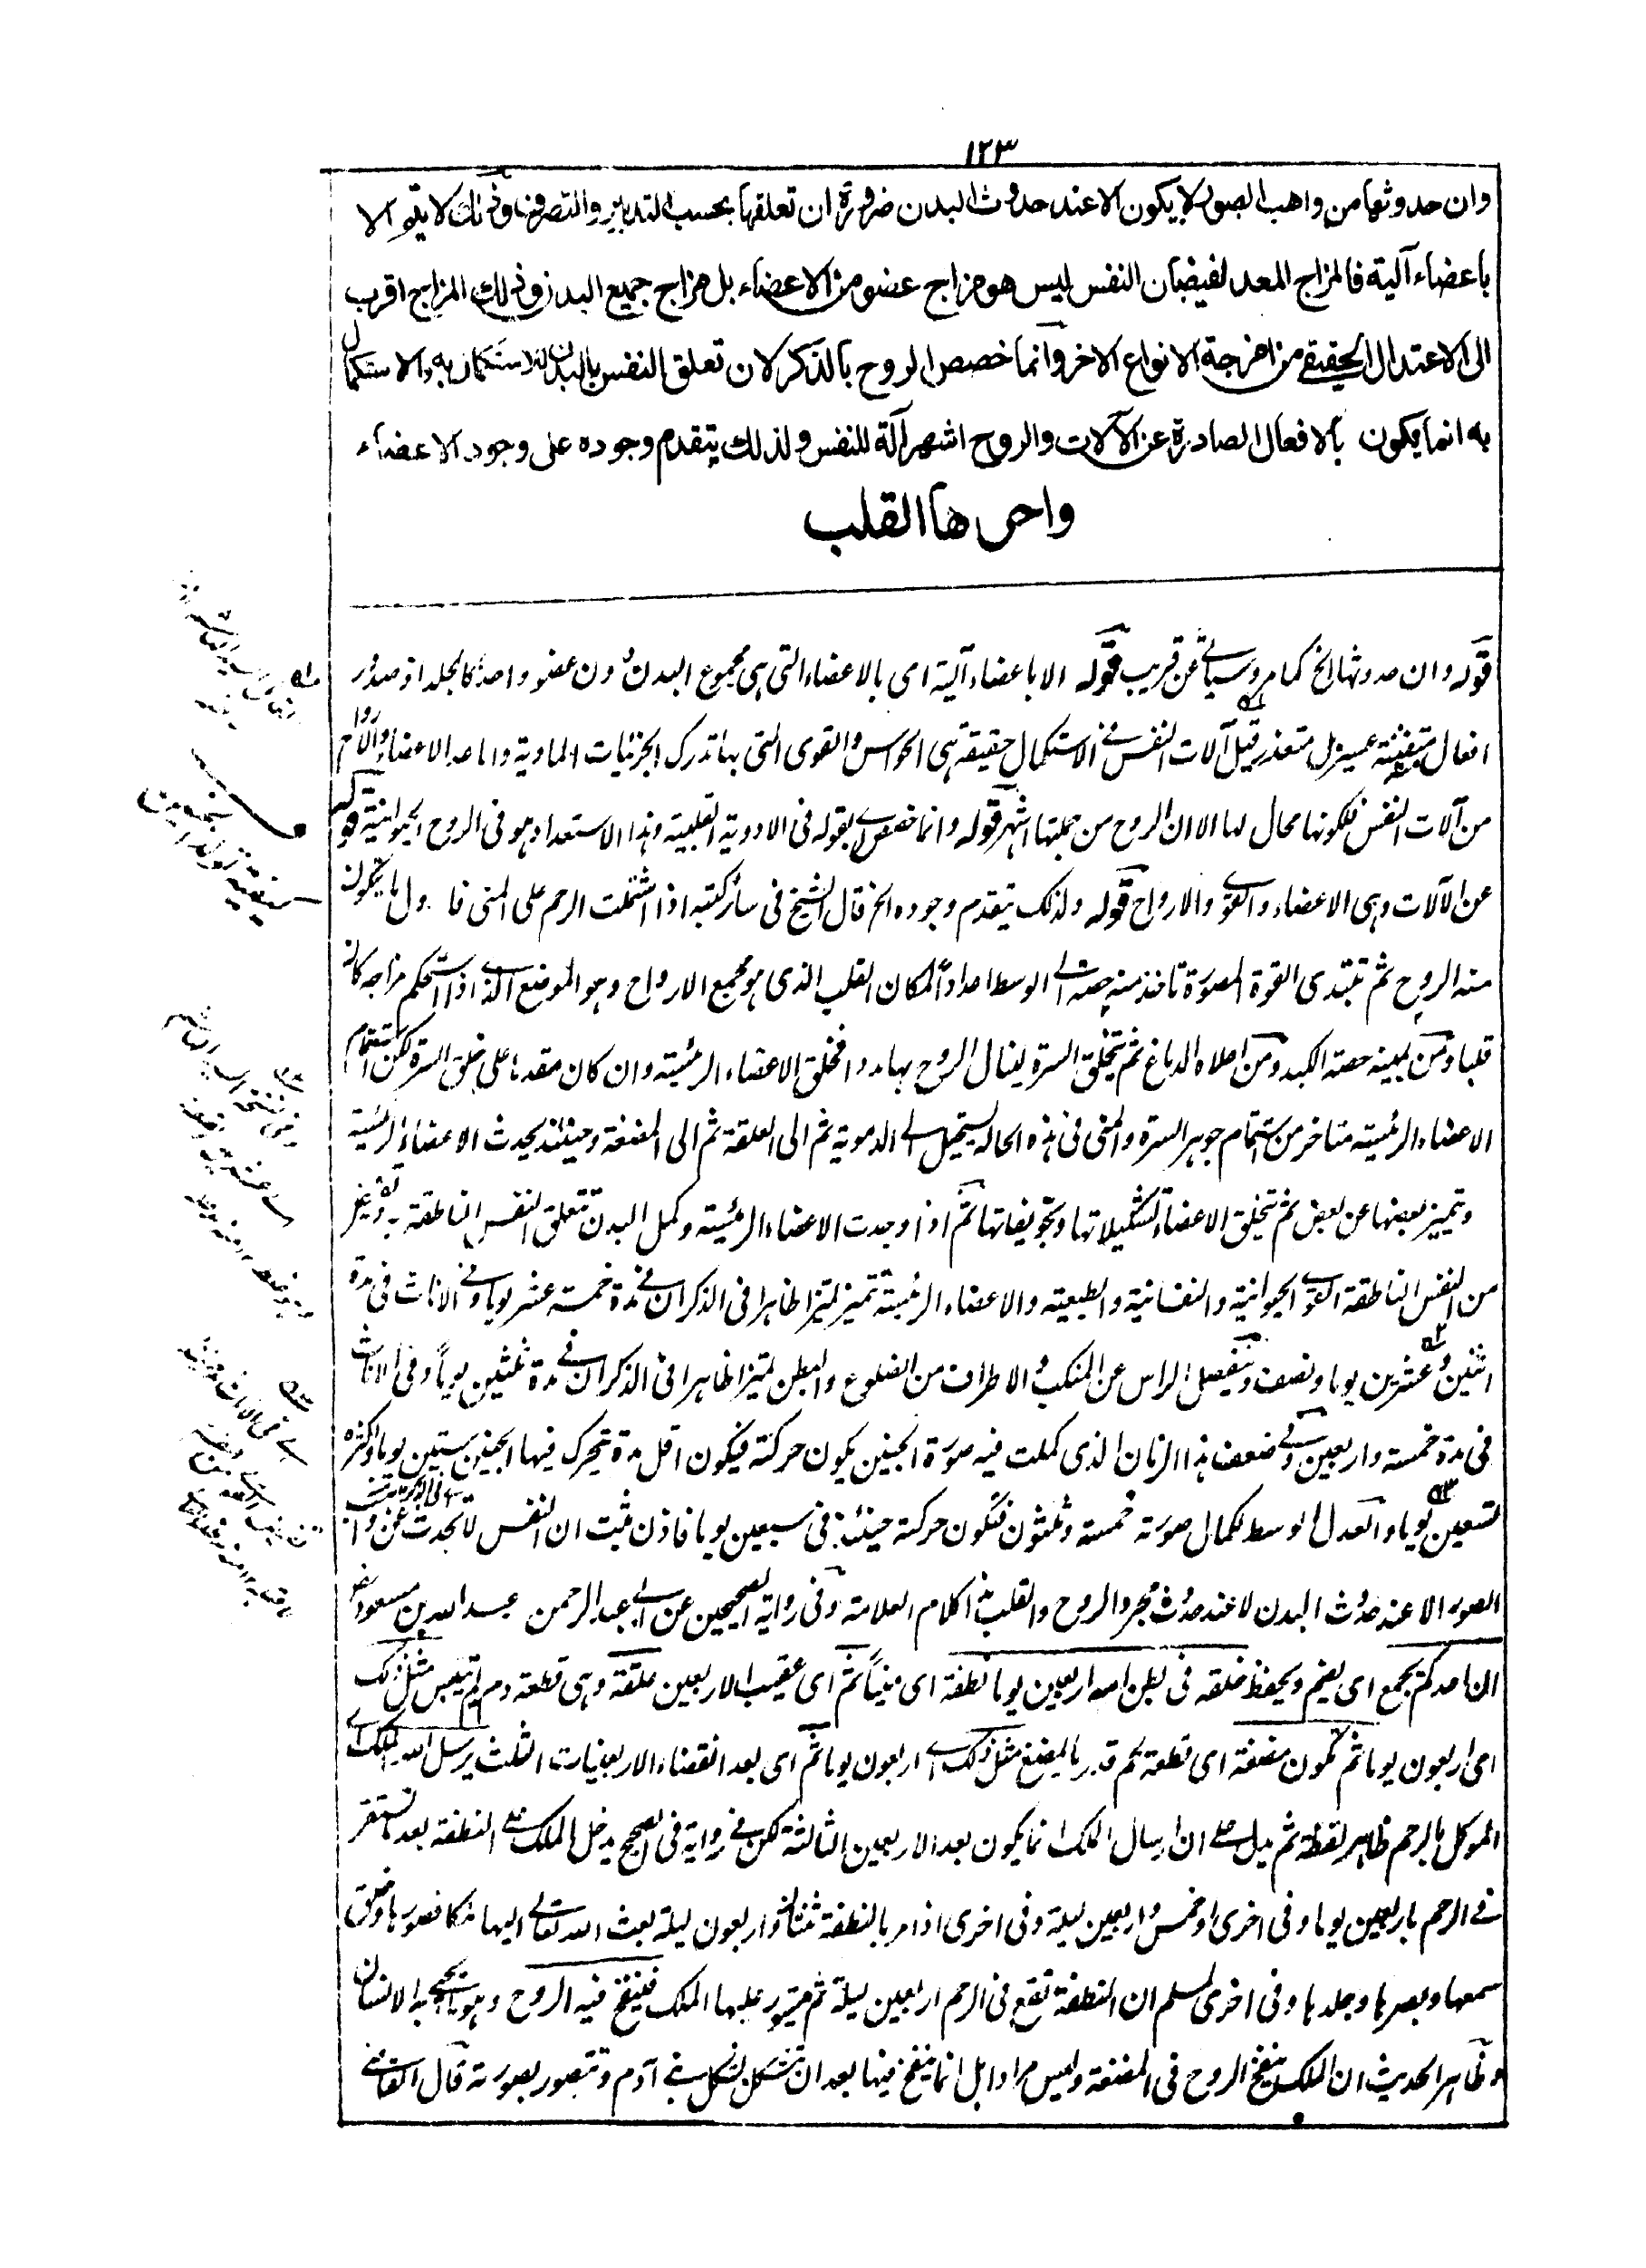 ١٢٣
وان حدوثها من واهب الصور لا يكون الا عند حدوث البدن ضرورة ان تعلقها بحسب التدبير والتصرف وذلك لا يتم الا
باعضاء آلية فالمزاج المعد لفيضان النفس ليس هو مزاج عضو من الاعضاء بل مزاج جميع البدن وذلك المزاج اقرب
الى الاعتدال الحقيقي من امزجة الانواع الاخر وانما خصص الروح بالذكر لان تعلق النفس بالبدن للاستكمال به والاستكمال
به انما يكون بالافعال الصادرة عن الآلات والروح اشهر آلة للنفس ولذلك يتقدم وجوده على وجود الاعضاء
واحرها القلب
قوله وان حدوثها الخ كما مر وسياتي عن قريب قوله الا باعضاء آلية اى بالاعضاء التى هى مجموع البدن دون عضو واحد كالجلد اذ صدور
افعال متفننة عمیزل متعذر قيل آلات النفس فى الاستكمال حقيقة هى الحواس والقوى التى بها تدرك الجزئيات المادية واما عد الاعضاء والارواح
من آلات النفس فلكونها محال لها الا ان الروح من جملتها اشهر قوله وانما خصص اى بقوله فى الادوية القلبية وهذا الاستعداد هو فى الروح الحيوانية قوله
عن الآلات وهى الاعضاء والقوى والارواح قوله ولذلك يتقدم وجوده الخ قال الشيخ فى سائر كتبه اذا اشتملت الرحم على المنى فاول ما يتكون
منه الروح ثم تبتدى القوة المصورة تاخذ منه حصة الى الوسط اعدادا لمكان القلب الذى هو مجمع الارواح وهو الموضع الذى اذا استحكم مزاجه كان
قلبا ومن يمينه حصة الكبد ومن اعلاه الدماغ ثم يتخلق السرة لينال الروح بها مددا فخلق الاعضاء الرئيسة وان كان مقدما على خلق السرة لكن استتمام
الاعضاء الرئيسة متاخر من استتمام جوهر السرة والمنى فى هذه الحالة يستحيل الى الدموية ثم الى العلقة ثم الى المضغة وحينئذ يحدث الاعضاء الرئيسة
وتميز بعضها عن بعض ثم تتخلق الاعضاء بتشكيلاتها وتجويفاتها ثم اذا وجدت الاعضاء الرئيسة وكمل البدن تتعلق النفس الناطقة به وتفيض
من النفس الناطقة القوى الحيوانية والنفسانية والطبيعية والاعضاء الرئيسة تتميز تميزا ظاهرا فى الذكران فى مدة خمسة عشر يوما وفى الاناث فى مدة
اثنين وعشرين يوما ونصف وينفصل الراس عن المنكب والاطراف من الضلوع والبطن تميزا ظاهرا فى الذكران فى مدة ثلثين يوما وفى الاناث
فى مدة خمسة واربعين وفى ضعف هذا الزمان الذى كملت فيه صورة الجنين يكون حركته فيكون اقل مدة يتحرك فيها الجنين ستين يوما واكثره
تسعين يوما والعدل الوسط لكمال صورته خمسة وثلثون فتكون حركته حينئذ فى سبعين يوما فاذن ثبت ان النفس لا تحدث عن واهب
الصور الا عند حدوث البدن لا عند حدوث مجرد الروح والقلب هذا كلام العلامة وفى رواية الصحيحين عن ابى عبد الرحمن عبد الله بن مسعود رض
ان احدكم يجمع اى يضم ويحفظ خلقه فى بطن امه اربعين يوما نطفة اى منيا ثم اى عقيب الاربعين علقة وهى قطعة دم لم تيبس مثل ذلك
اى اربعون يوما ثم تكون مضغة اى قطعة لحم قدر ما يمضغ مثل ذلك اى اربعون يوما ثم اى بعد انقضاء الاربعينات الثلث يرسل الله الملك اى
الموكل بالرحم ظاهر لفظة ثم يدل على ان ارسال الملك انما يكون بعد الاربعين الثالثة لكن فى رواية فى الصحيح يدخل الملك على النطفة بعد ما تستقر
فى الرحم باربعين يوما وفى اخرى او خمس واربعين ليلة وفى اخرى اذا مر بالنطفة ثنتان واربعون ليلة بعث الله تعالى اليها ملكا فصورها وخلق
سمعها وبصرها وجلدها وفى اخرى لمسلم ان النطفة تقع فى الرحم اربعين ليلة ثم يتسور عليها الملك فينفخ فيه الروح وهو ما يحيى به الانسان
وظاهر الحديث ان الملك ينفخ الروح فى المضغة وليس مرادا بل انما ينفخ فيها بعد ان تتشكل بشكل بنى آدم وتتصور بصورته قال القاضى